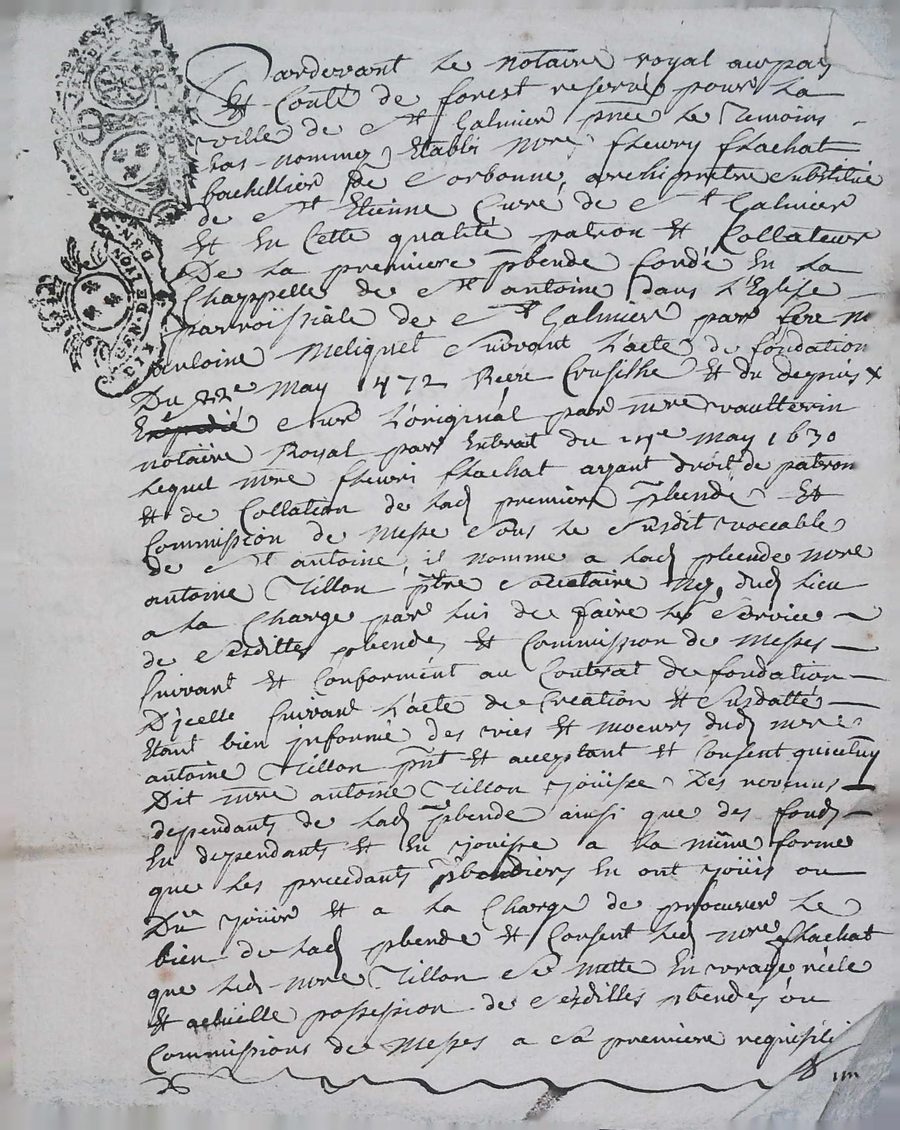 Pardevant le notaire royal au pais
Et Conté de forest reservé pour la
ville de St Galmier pnce le Temoins
bas nommez Etabli mre fleury flachat
bachellier de Sorbonne archipretre substitué
de St Etienne Curé de St Galmier
Et En Cette qualité patron Et Collateur
De la premiere pbende fondé En la
Chappelle de St antoine dans L'Eglise
parroissiale de St Galmier par
antoine Meliquet Suivant L'acte de fondation
Du may 1472 Et du depuis
Expedié Sur L'original par mre vaulterin
notaire Royal par Extrat du may 1630
Lequel mre fleuri flachat ayant droit de patron
Et de Collation de lad premiere pbende Et
Commission de Messe Sous le Susdit vocable
de St antoine, il nomme a lad pbende mre
antoine Tillon ptre Societaire dud Lieu
a la Charge par lui de faire les Service
de Sesdittes pbendes Et Commission de Messes
Suivant Et Conformént au Contrat de fondation
D'icelle Suivant L'acte de Creation Et Susdatté
Etant bien informé des vies Et moeurs dud mre
antoine Tillon pnt Et acceptant Et Consent que
Dit mre antoine Tillon jouisse Des revenus
dependants de lad pbende ainsi que des fonds
En dependants Et En jouisse a la même forme
que les precedants pbendiers En ont jouis ou
Dû jouir Et a la Charge de procurer le
bien de lad pbende Et Consent led mre flachat
que led mre Tillon Se mette En vraye réele
Et actuelle possession de Sesdittes pbendes ou
Commissions de Messes a Sa premiere requisiti